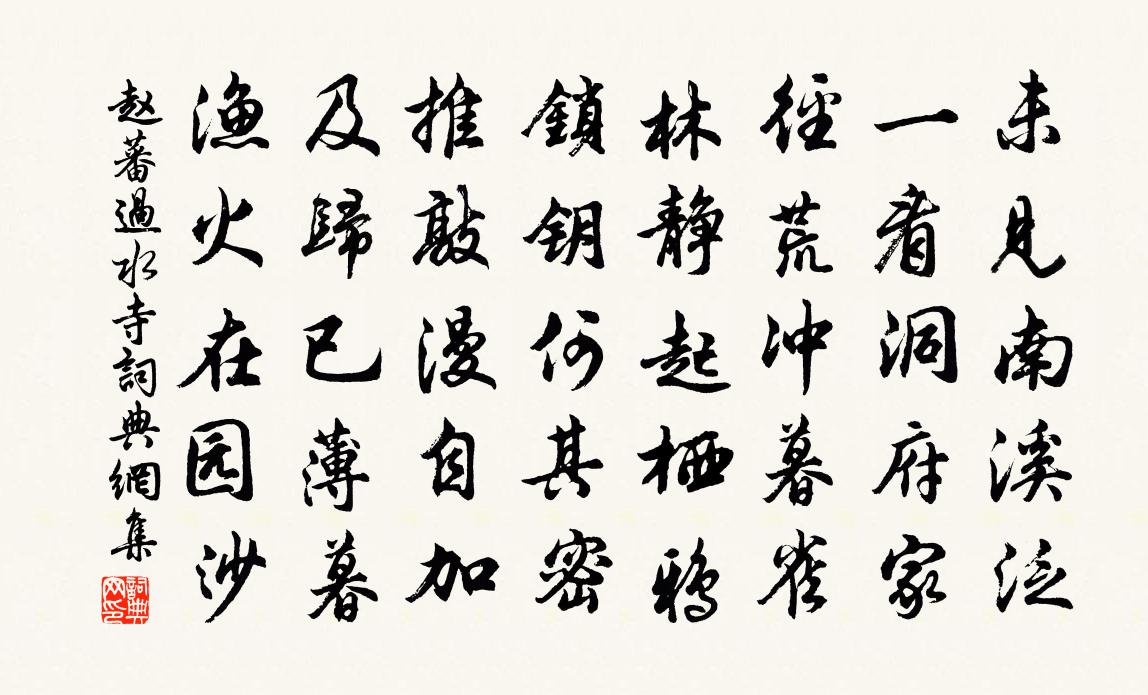 未见南溪泛
一看洞府家
径荒冲暮雀
林静起栖鸦
鎖钥何其密
推敲漫自加
及歸已薄暮
渔火在园沙
赵蕃過水寺詞典網集
詞典网印